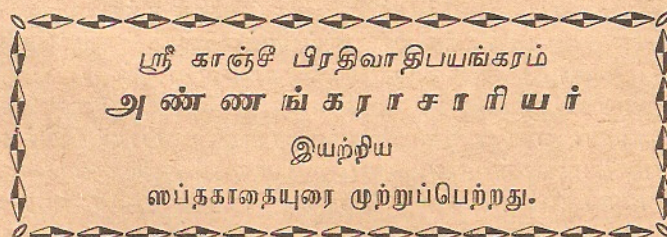 ஸ்ரீ காஞ்சீ பிரதிவாதிபயங்கரம்
அண்ணங்கராசாரியர்
இயற்றிய
ஸப்தகாதையுரை முற்றுப்பெற்றது.